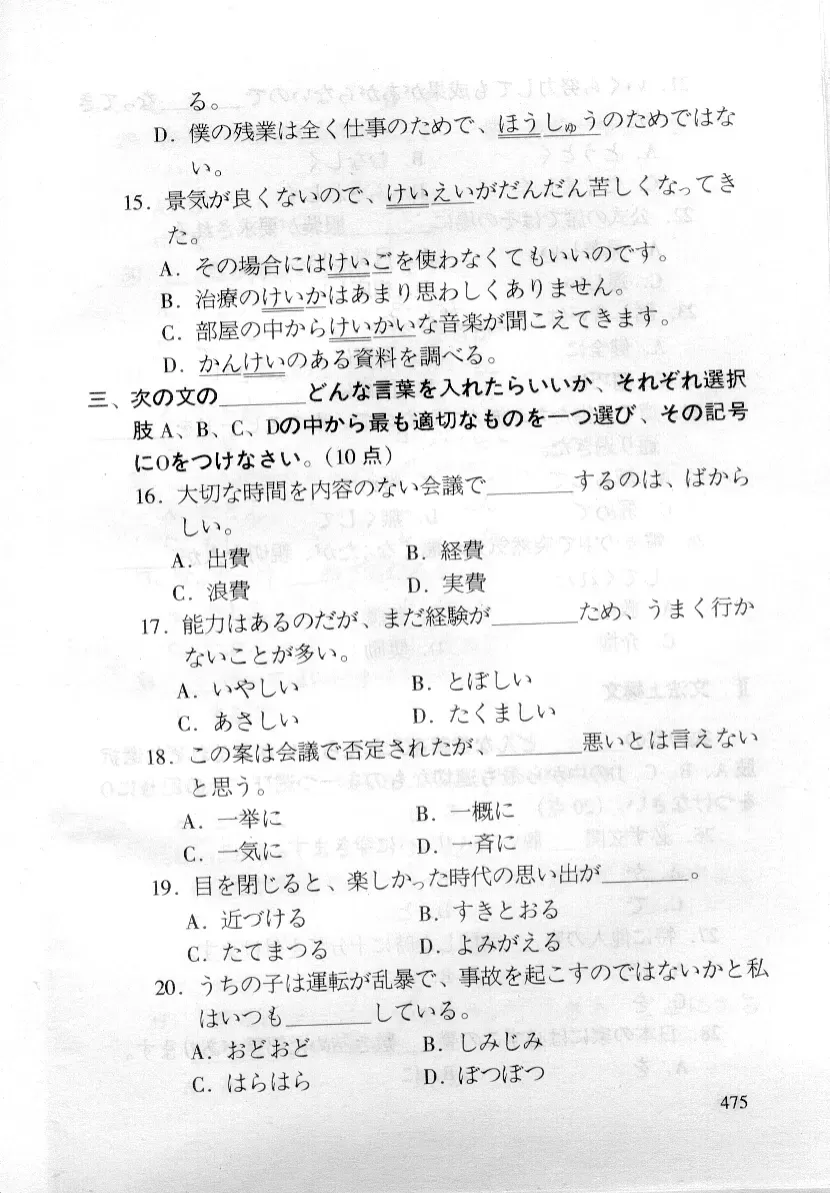 る。
D．僕の残業は全く仕事のためで、ほうしゅうのためではな
い。
15．景気が良くないので、けいえいがだんだん苦しくなってき
た。
A．その場合にはけいごを使わなくてもいいのです。
B．治療のけいかはあまり思わしくありません。
C．部屋の中からけいかいな音楽が聞こえてきます。
D．かんけいのある資料を調べる。
三、次の文の______どんな言葉を入れたらいいか、それぞれ選択
肢 A、B、C、Dの中から最も適切なものを一つ選び、その記号
にOをつけなさい。（10 点）
16．大切な時間を内容のない会議で______するのは、ばから
しい。
A．出費 B．経費
C．浪費 D．実費
17．能力はあるのだが、まだ経験が______ため、うまく行か
ないことが多い。
A．いやしい B．とぼしい
C．あさしい D．たくましい
18．この案は会議で否定されたが、______悪いとは言えない
と思う。
A．一挙に B．一概に
C．一気に D．一斉に
19．目を閉じると、楽しかった時代の思い出が______。
A．近づける B．すきとおる
C．たてまつる D．よみがえる
20．うちの子は運転が乱暴で、事故を起こすのではないかと私
はいつも______している。
A．おどおど B．しみじみ
C．はらはら D．ぼつぼつ
475